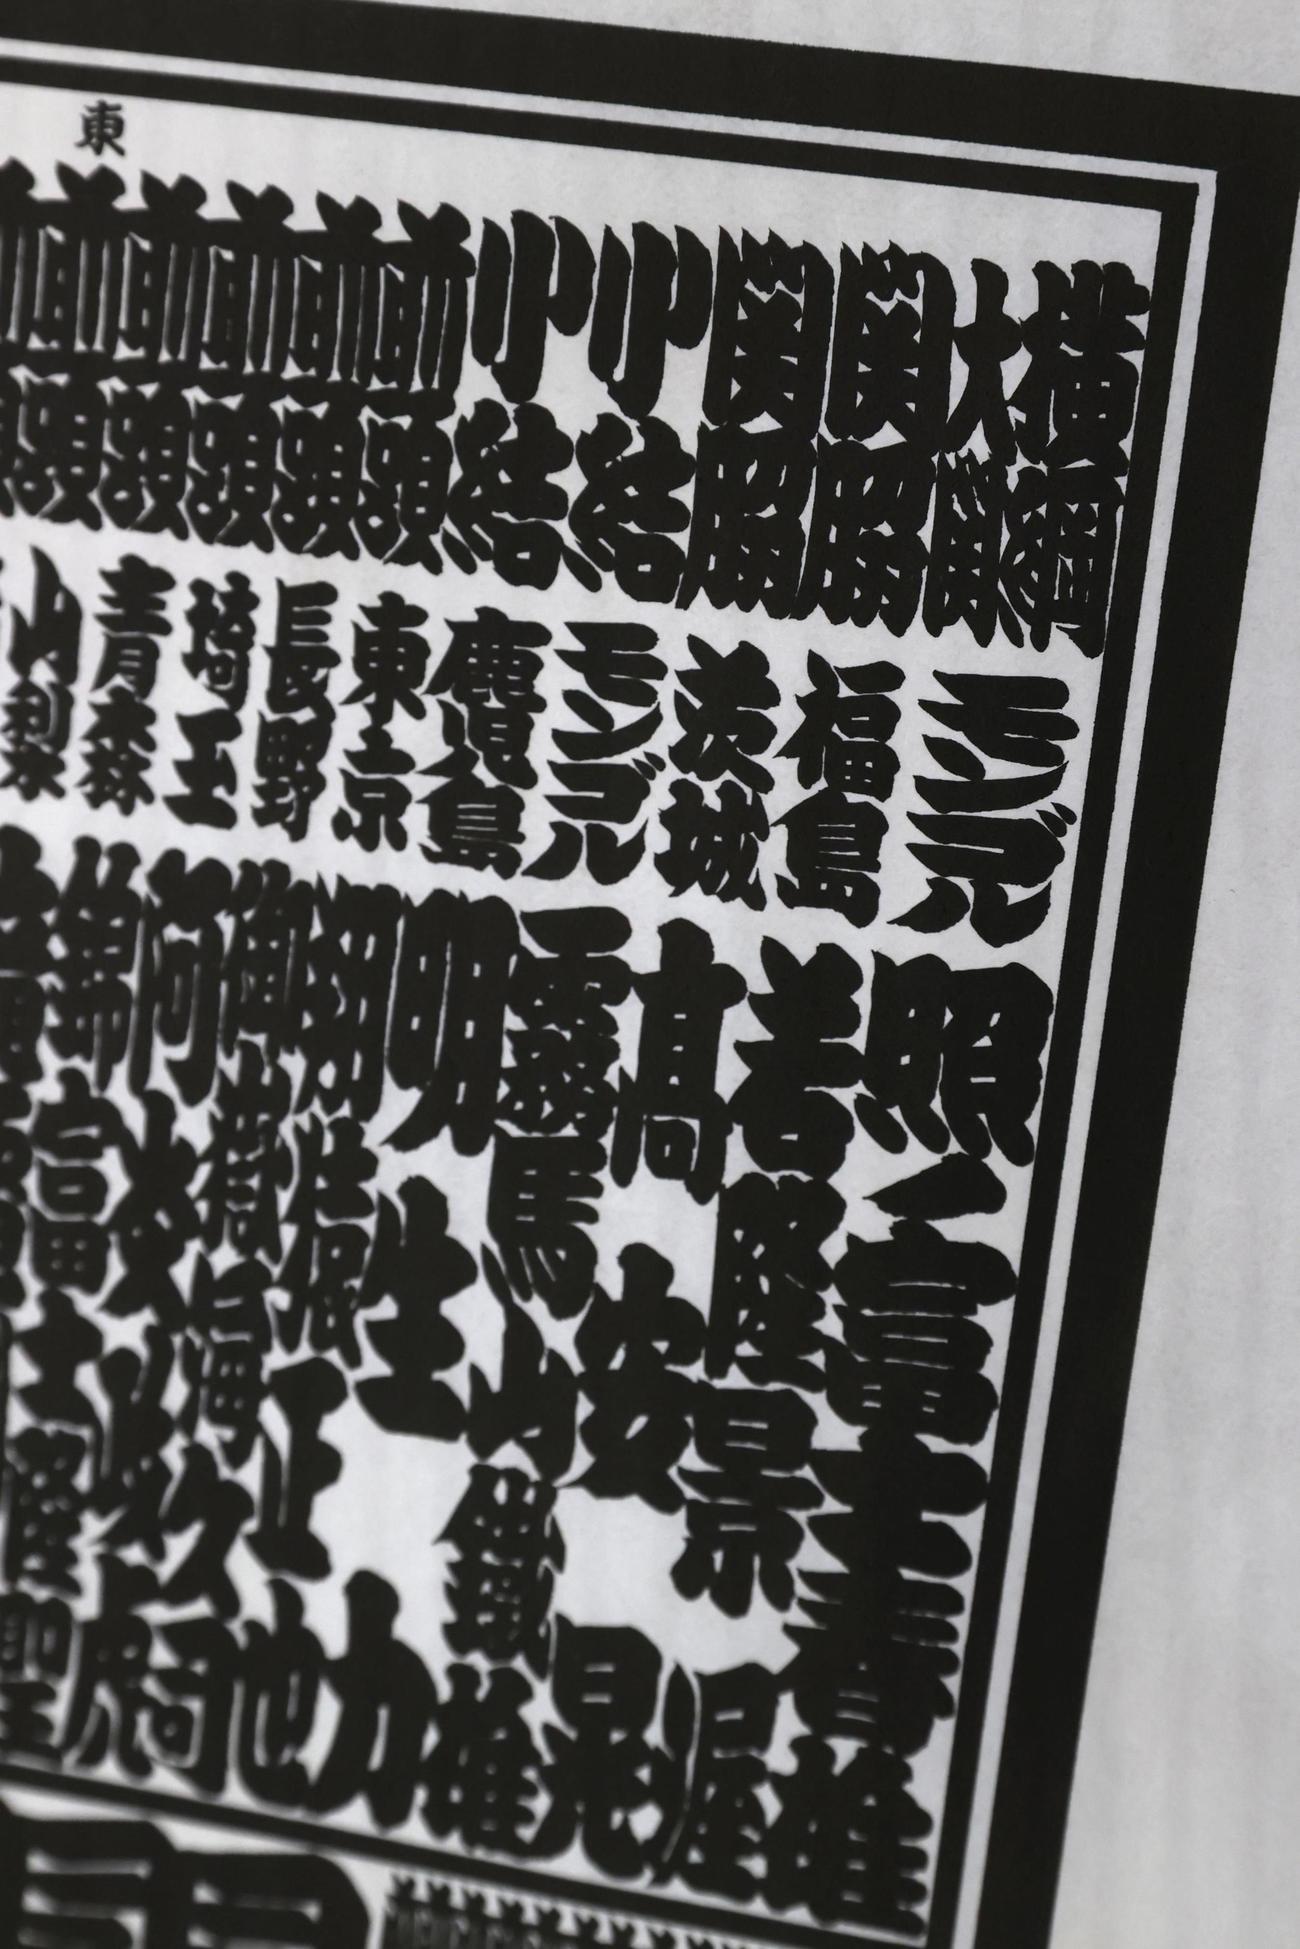 東
横綱
大関
モンゴル
照ノ富士春雄
関脇
福島
若隆景渥
関脇
茨城
髙安晃
小結
モンゴル
霧馬山鐵雄
小結
鹿児島
明生力
前頭
東京
翔猿正也
前頭
長野
御嶽海久司
前頭
埼玉
阿炎政虎
前頭
青森
錦富士隆聖
前頭
山梨